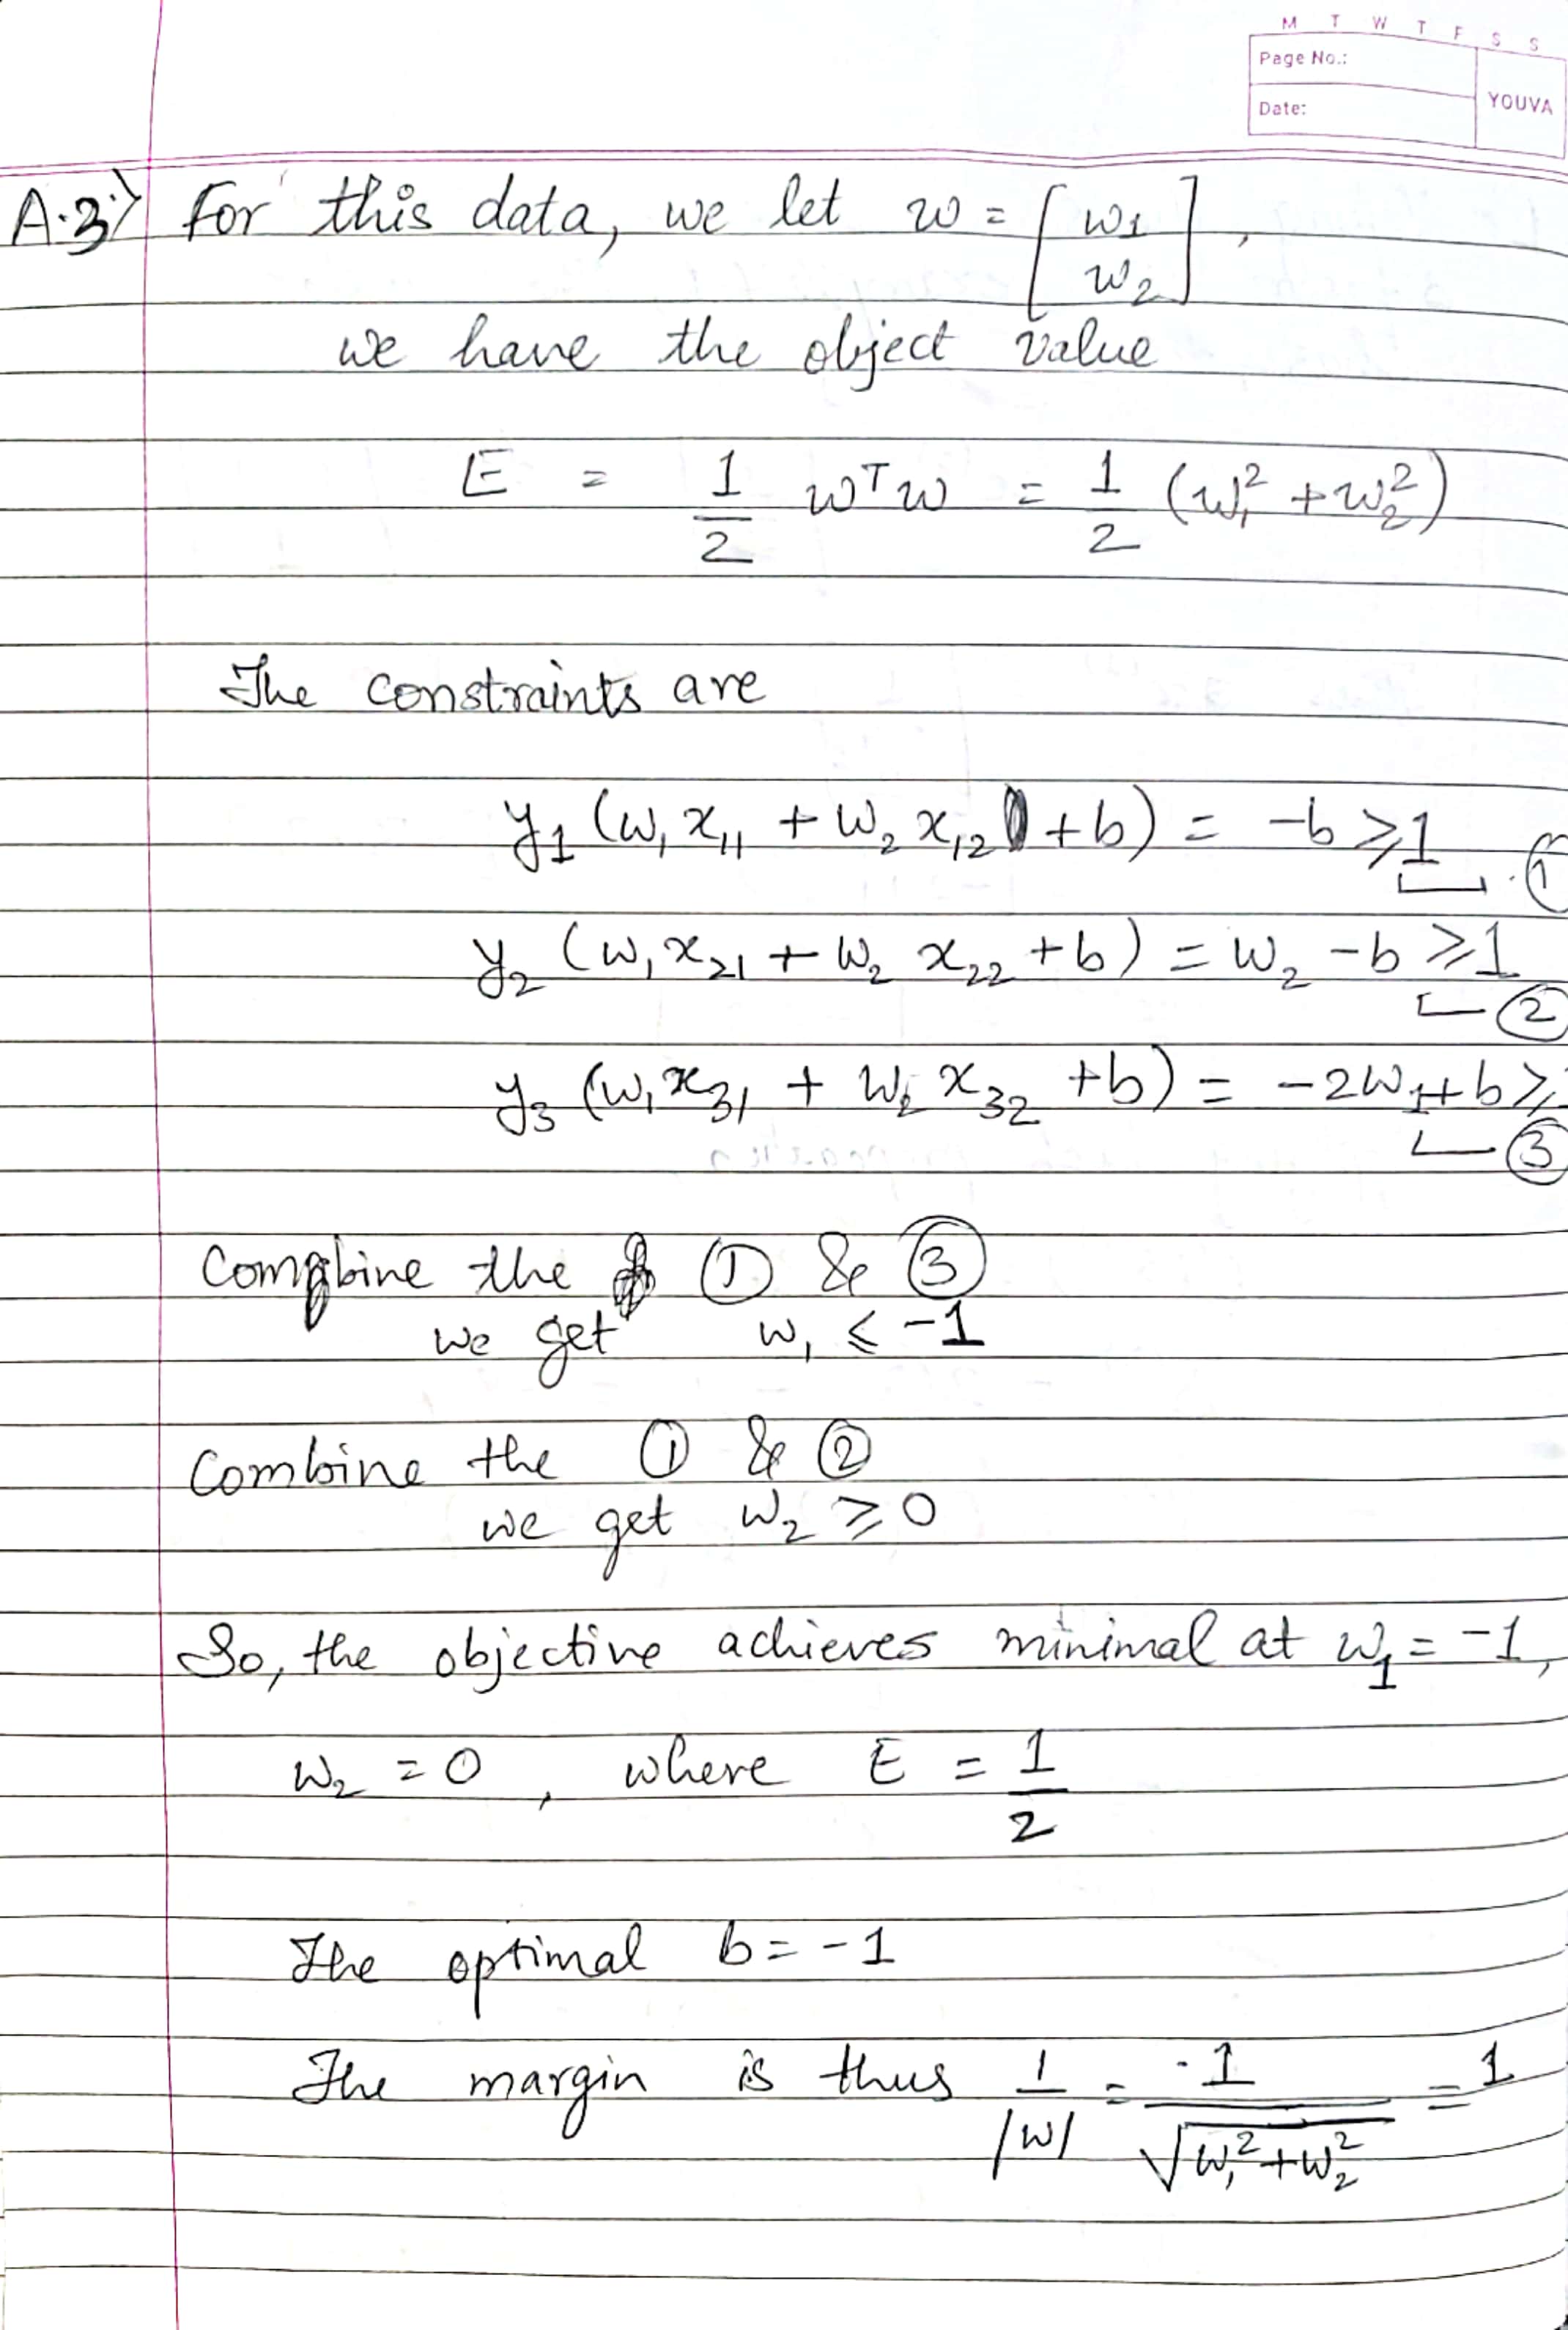 M T W T F S S
Page No.:
Date:
YOUVA
A.3) For this data, we let w = [w1
w2],
we have the object value
E = 1/2 wᵀw = 1/2 (w₁² + w₂²)
The constraints are
y1 (w₁x₁₁ + w₂x₁₂ + b) = -b ⩾ 1 ①
y₂ (w₁x₂₁ + w₂ x₂₂ + b) = w₂ - b ⩾ 1
②
y₃ (w₁x₃₁ + w₂ x₃₂ + b) = -2w1 + b ⩾
③
Combine the ① & ③
we get w₁ ⩽ -1
Combine the ① & ②
we get w₂ ⩾ 0
So, the objective achieves minimal at w1 = -1,
w₂ = 0, where E = 1/2
The optimal b = -1
The margin is thus 1/|w| = 1/√(w₁² + w₂²) = 1